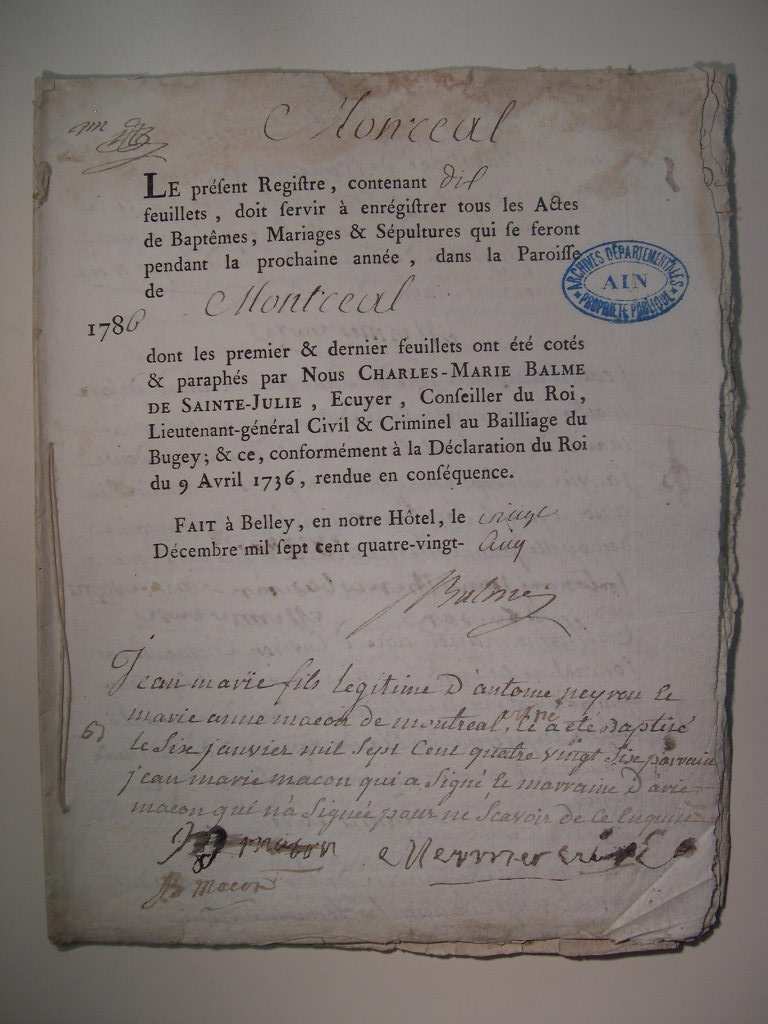 Montreal
LE préſent Regiſtre, contenant dix
feuillets, doit ſervir à enrégiſtrer tous les Actes
de Baptêmes, Mariages & Sépultures qui ſe feront
pendant la prochaine année, dans la Paroiſſe
de Montreal
1786
ARCHIVES DÉPARTEMENTALES
AIN
PROPRIÉTÉ PUBLIQUE
dont les premier & dernier feuillets ont été cotés
& paraphés par Nous CHARLES-MARIE BALME
DE SAINTE-JULIE, Ecuyer, Conſeiller du Roi,
Lieutenant-général Civil & Criminel au Bailliage du
Bugey; & ce, conformément à la Déclaration du Roi
du 9 Avril 1736, rendue en conſéquence.
FAIT à Belley, en notre Hôtel, le vingt
Décembre mil ſept cent quatre-vingt- cinq
Balme
Jean marie fils legitime D'antoine neyron et
marie anne macon de montreal, est né et a été Baptisé
le six janvier mil sept Cent quatre vingt six parrain
jean marie macon qui a signé et marraine
macon qui n'a signée pour ne scavoir de ce enquise
macon
macon